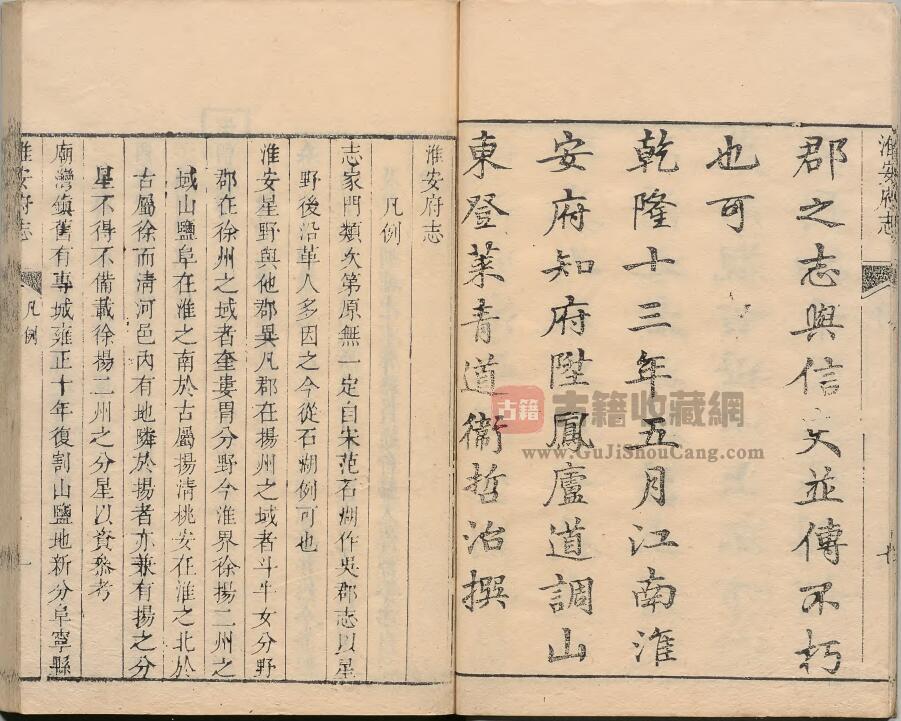 淮安府志
郡之志與信文並傳不朽
也可
乾隆十三年五月江南淮
安府知府陞鳳廬道調山
東登萊青道衞哲治撰
古籍 古籍收藏網
www.GuJiShouCang.com
淮安府志
凡例
志家門類次第原無一定自宋范石湖作吳郡志以星
野後沿革人多因之今從石湖例可也
淮安星野與他郡異凡郡在揚州之域者斗牛女分野
郡在徐州之域者奎婁胃分野今淮界徐揚二州之
域山鹽阜在淮之南於古屬揚清桃安在淮之北於
古屬徐而清河邑內有地隣於揚者亦兼有揚之分
星不得不備載徐揚二州之分星以資叅考
廟灣鎮舊有專城雍正十年復割山鹽地新分阜寧縣
淮安府志
凡例
一